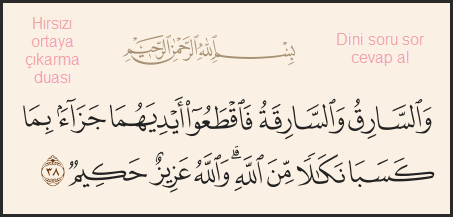 Hırsızı
ortaya
çıkarma
duası
بِسْمِ اللَّهِ الرَّحْمَٰنِ الرَّحِيمِ
Dini soru sor
cevap al
وَالسَّارِقُ وَالسَّارِقَةُ فَاقْطَعُوا أَيْدِيَهُمَا جَزَاءً بِمَا
كَسَبَا نَكَالًا مِّنَ اللَّهِ ۗ وَاللَّهُ عَزِيزٌ حَكِيمٌ ٣٨